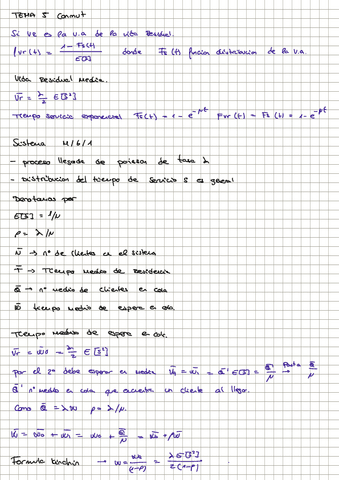 TEMA 5 Conmut
Si Vr es la v.a de la vida Residual.
fvr(t) = 1 - Fs(t) / E[S] donde Fs(t) funcion distribucion de la v.a.
Vida Residual Media.
V̄r = λ/2 E[S²]
Tiempo servicio exponencial Fs(t) = 1 - e^-μt Fvr(t) = Fs(t) = 1 - e^-μt
Sistema M/G/1
- proceso llegada de poisson de tasa λ
- Distribucion del tiempo de servicio S es general
Denotamos por
E[S] = 1/μ
ρ = λ/μ
N̄ → nº de clientes en el sistema
T̄ → Tiempo medio de Residencia
Q̄ → nº medio de clientes en cola
W̄ tiempo medio de espera en cola
Tiempo medio de espera en cola.
V̄r = W̄0 = λ/2 E[S²]
por el 2º debe esperar en media W̄1 = Q̄' E[S] = Q̄'/μ → Pasta Q̄/μ
Q̄' nº medio en cola que encuentra un cliente al llegar.
Como Q̄ = λW ρ = λ/μ.
W̄ = W̄0 + W̄1 = W0 + Q̄/μ = W̄0 + ρW̄
Formula → W = W0/(1-ρ) = λE[S²]/2(1-ρ)